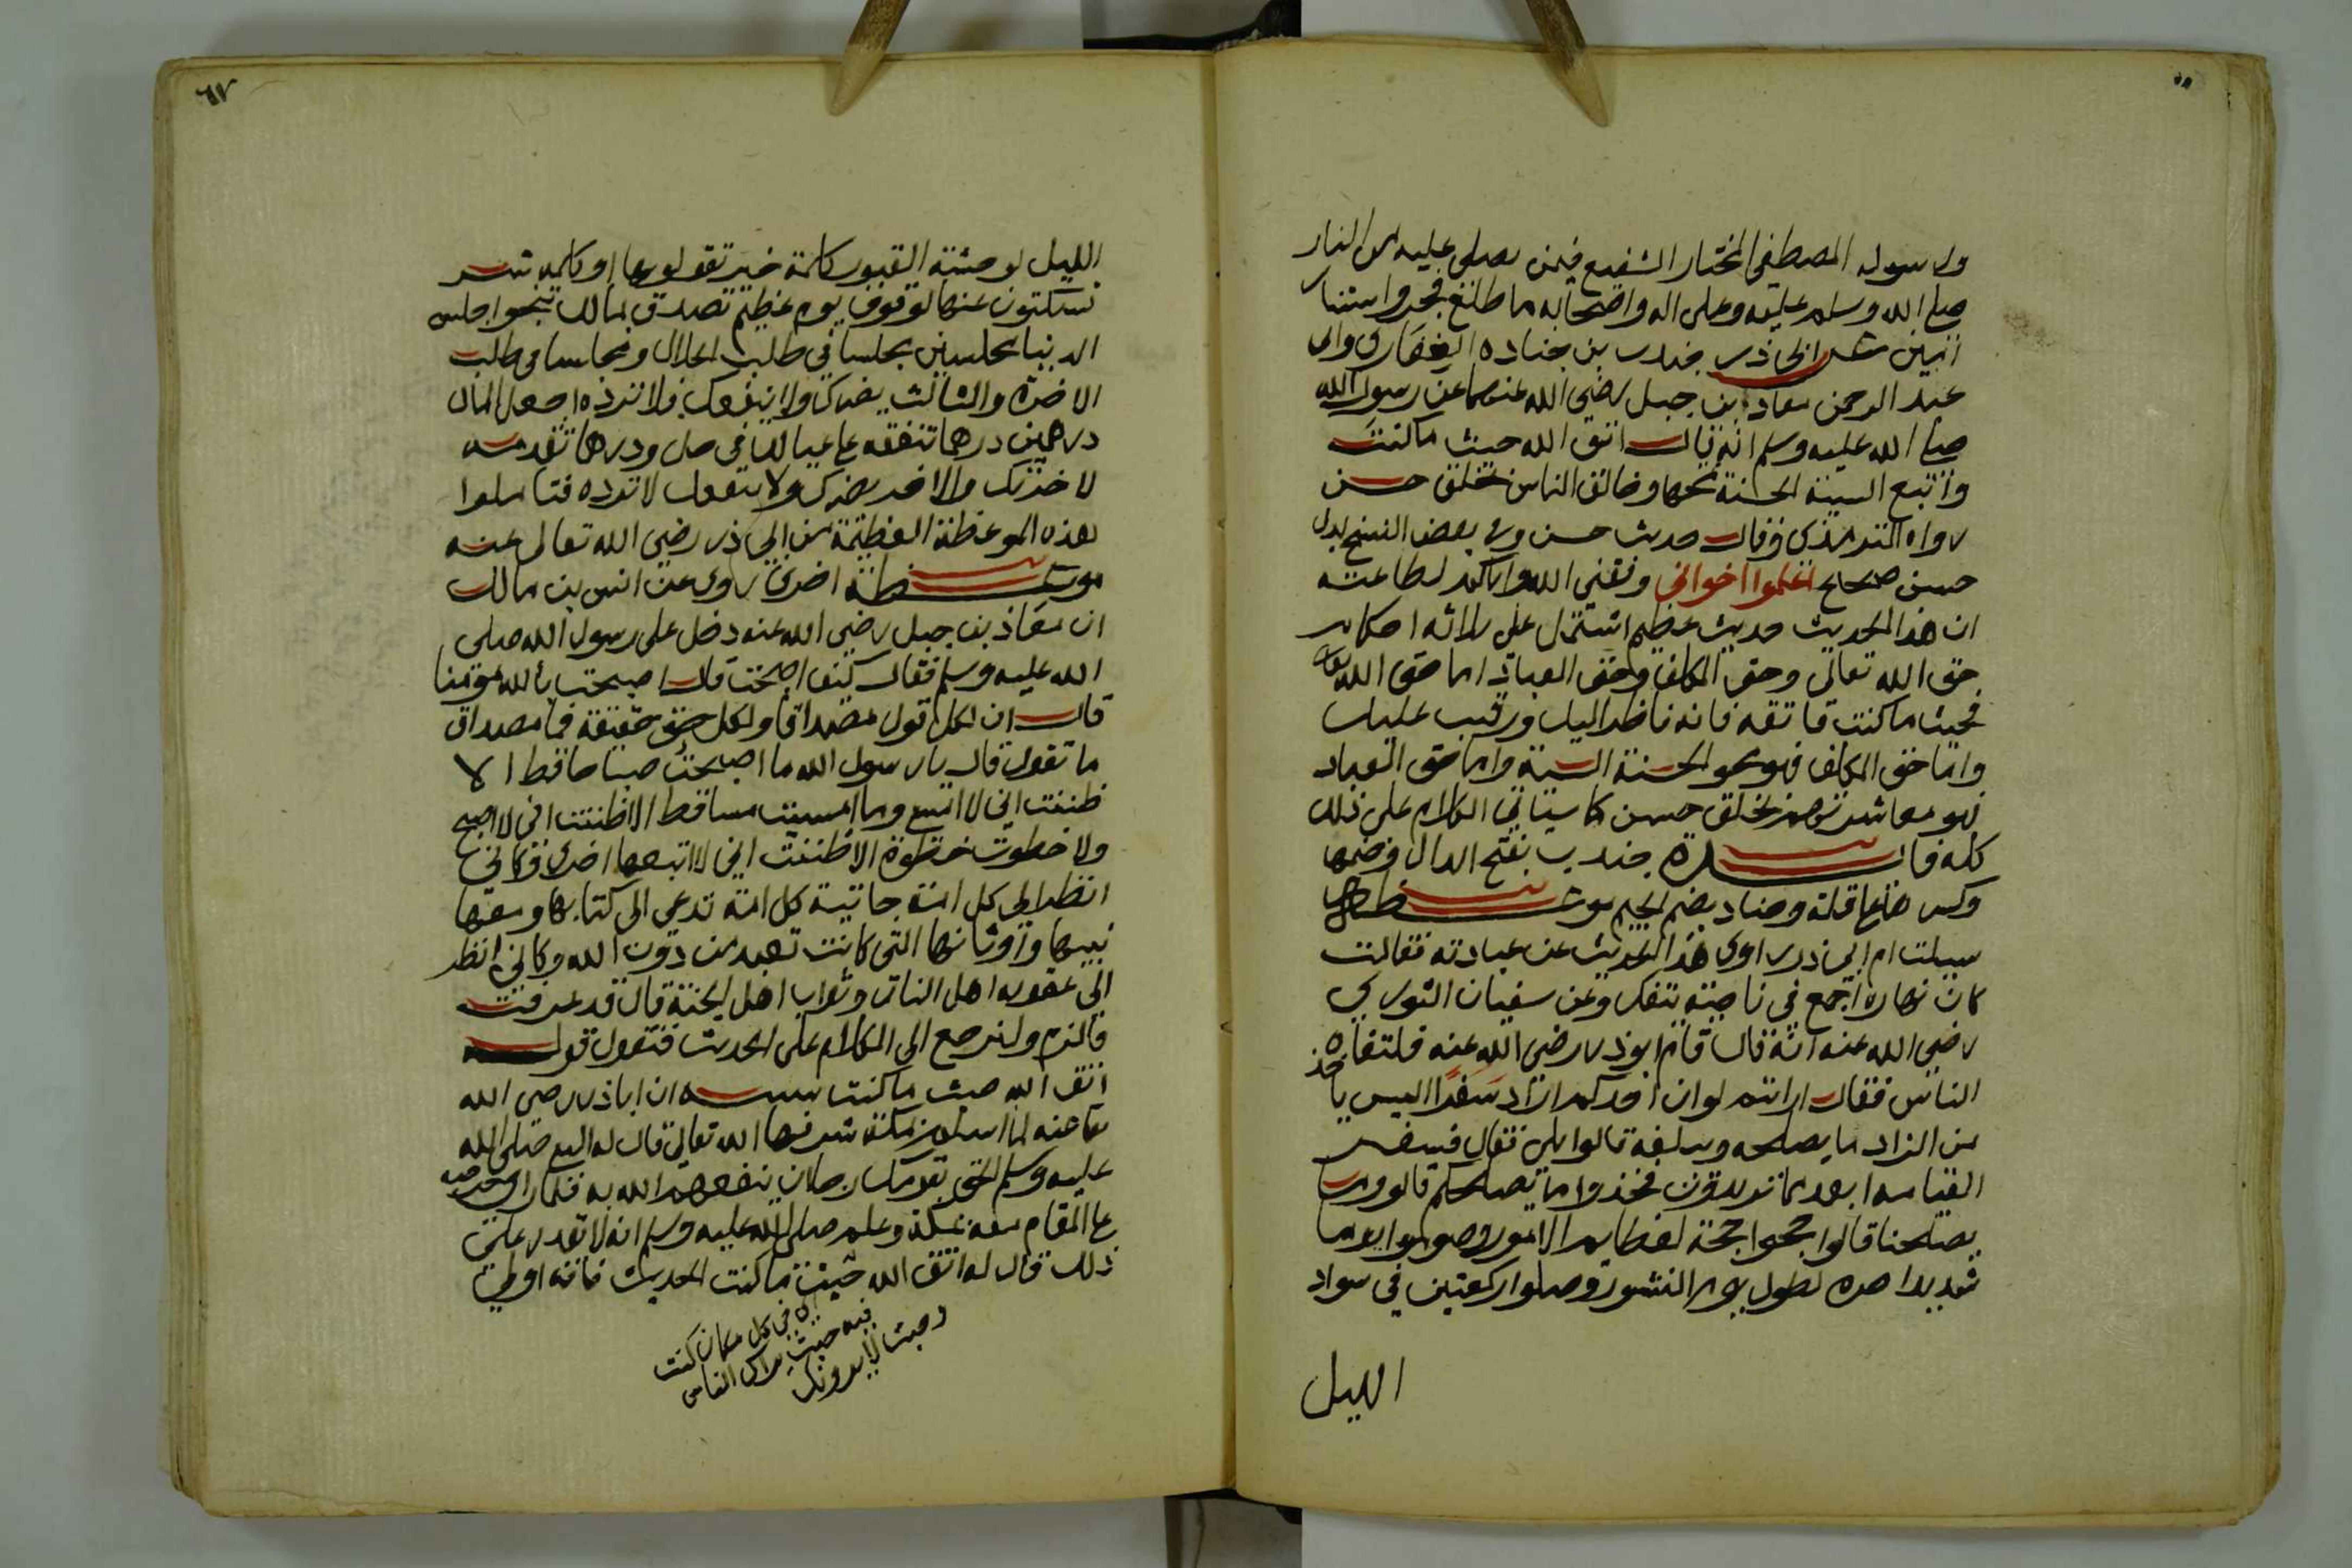 ورسوله المصطفى المختار الشفيع فيمن يصلى عليه من النار
صلى الله وسلم عليه وعلى اله واصحابه ما طلع فجر واستنار
عن ابى ذر جندب بن جناده الغفارى وابى
عبد الرحمن معاذ بن جبل رضى الله عنهما عن رسول الله
صلى الله عليه وسلم انه قال اتق الله حيث ما كنت
واتبع السيئة الحسنة تمحها وخالق الناس بخلق حسن
رواه الترمذى وقال حديث حسن وفى بعض النسخ بدل
حسن صحيح اعلموا اخوانى وفقنى الله واياكم لطاعته
ان هذا الحديث حديث عظيم اشتمل على ثلاثة احكام
حق الله تعالى وحق المكلف وحق العباد اما حق الله تعالى
فحيث ما كنت فاتقه فانه ناظر اليك ورقيب عليك
واما حق المكلف فهو محو الحسنة السيئة واما حق العباد
فهو معاشرتهم بخلق حسن كما سياتى الكلام على ذلك
كله فائدة جندب بفتح الدال وضمها
وكسرها قلة وجناد بضم الجيم موعظة
سيلت ام ابى ذر راوى هذا الحديث عن عبادته فقالت
كان نهاره اجمع فى ناحية يتفكر وعن سفيان الثورى
رضى الله عنه انه قال قام ابو ذر رضى الله عنه فلتقاه
الناس فقال ارايتم لو ان احدكم اراد سفرا اليس ياخذ
من الزاد ما يصلحه ويبلغه قالوا بلى فقال فسفر
القيامه ابعد مما تريدون فخذوا ما يصلحكم قالوا وما
يصلحنا قالوا حجوا حجة لعظايم الامور وصوموا يوما
شديدا حره لطول يوم النشور وصلوا ركعتين فى سواد
الليل
الليل لوحشة القبور كلمة خير تقولوها او كلمة شر
تسكتون عنها لوقوف يوم عظيم تصدق بمالك تنجو اجعل
الدنيا مجلسين مجلسا فى طلب الحلال ومجلسا فى طلب
الاخرة والثالث يضرك ولا ينفعك فلا ترده اجعل المال
درهمين درهما تنفقه على عيالك فى حل ودرهما تقدمه
لاخرتك والاخر يضرك ولا ينفعك لا ترده فتاملوا
هذه الموعظة العظيمة من ابى ذر رضى الله تعالى عنه
موعظة اخرى روى عن انس بن مالك
ان معاذ بن جبل رضى الله عنه دخل على رسول الله صلى
الله عليه وسلم فقال كيف اصبحت قال اصبحت بالله مؤمنا
قال ان لكل قول مصداقا ولكل حق حقيقة فما مصداق
ما تقول قال يا رسول الله ما اصبحت صباحا قط الا
ظننت انى لا امسى وما امسيت مسا قط الا ظننت انى لا اصبح
ولا خطوت خطوة الا ظننت انى لا اتبعها اخرى وكانى
انظر الى كل امة جاثية كل امة تدعى الى كتابها ومعها
نبيها واوثانها التى كانت تعبد من دون الله وكانى انظر
الى عقوبه اهل النار وثواب اهل الجنة قال قد عرفت
فالزم ولنرجع الى الكلام على الحديث فنقول قوله
اتق الله حيث ما كنت سببه ان ابا ذر رضى الله
عنه لما اسلم بمكة شرفها الله تعالى قال له النبى صلى الله
عليه وسلم الحق بقومك رجاء ان ينفعهم الله به فلما راى حرصه
على المقام معه بمكة وعلم صلى الله عليه وسلم انه لا يقدر على
ذلك قال له اتق الله حيث ما كنت الحديث
فى كل مكان كنت
فيه حيث يراك الناس
وحيث لا يرونك